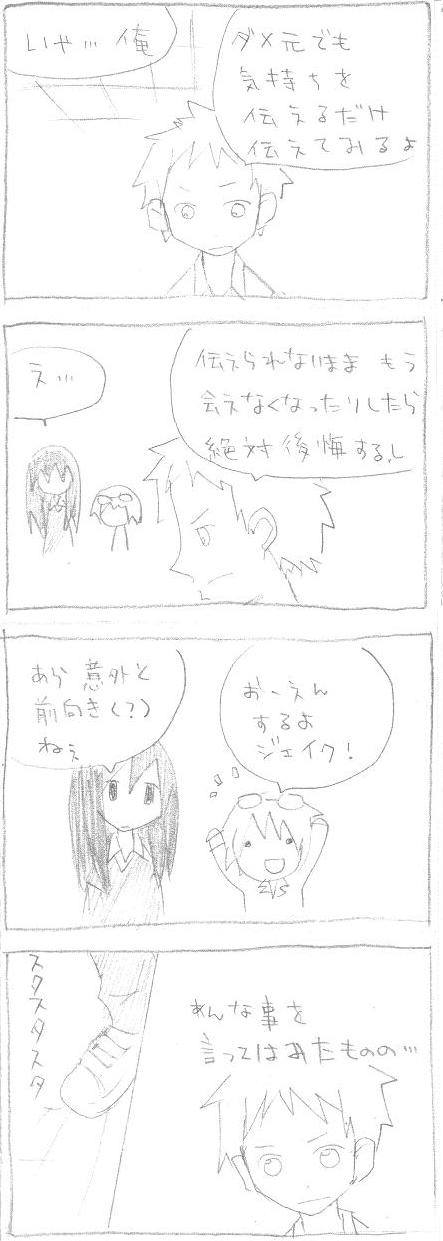 いや…俺
ダメ元でも
気持ちを
伝えるだけ
伝えてみるよ
え…
伝えられないまま もう
会えなくなったりしたら
絶対後悔するし
あら 意外と
前向き(?)
ねぇ
おーえん
するよ
ジェイク!
スタスタスタ
あんな事を
言ってはみたものの…